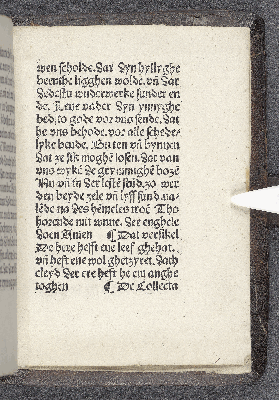 wen scholde. Dat dyn hyllyghe
beente ligghen wolde. vñ dat
dedestu wunderwerke sunder en
de. Leue vader dyn ynnyghe
bed, to gode vor uns sende. dat
he uns behode. vor alle schede-
lyke bande. Buten vñ bynnen
dat ze sik moghē losen. dat van
uns wykē de grymmighē bozē
Nu vñ in der lestē stūd. zo wer
den beyde zele vñ lyff sund. na-
lēde na des hēmeles troē Tho
horende mit wune. der enghele
doen Amen ¶ Dat versikel
De here hefft ene leef ghehat.
vñ hefft ene wol ghetzyret. dath
cleyd der ere hefft he em anghe
toghen ¶ De Collecta